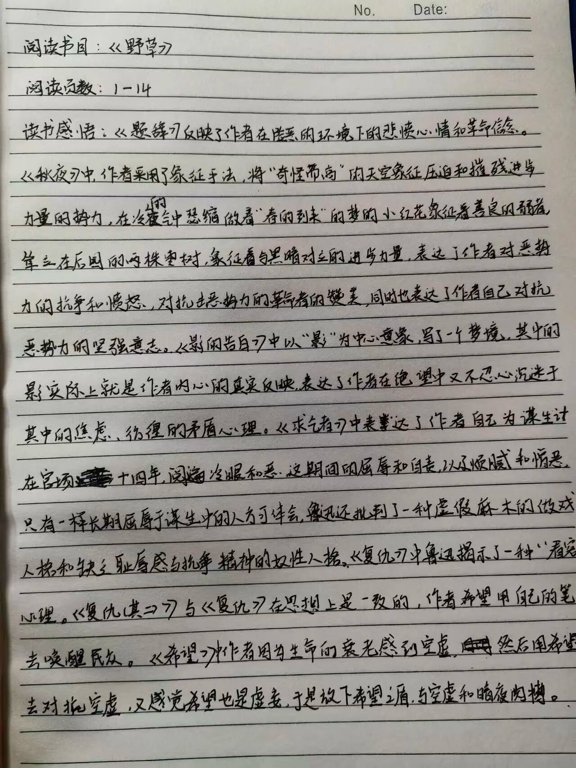 No. Date:
阅读书目：《野草》
阅读页数：1-14
读书感悟：《题辞》反映了作者在险恶的环境下的悲愤心情和革命信念。
《秋夜》中，作者采用了象征手法，将“奇怪而高”的天空象征压迫和摧残进步
力量的势力，在冷的夜气中瑟缩做着“春的到来”的梦的小红花象征着善良的弱者，
耸立在后园的两株枣树，象征着与黑暗对立的进步力量，表达了作者对恶势
力的抗争和愤怒，对抗击恶势力的革命者的赞美，同时也表达了作者自己对抗
恶势力的坚强意志。《影的告白》中以“影”为中心意象，写了一个梦境，其中的
影实际上就是作者内心的真实反映，表达了作者在绝望中又不忍心沉迷于
其中的焦虑，彷徨的矛盾心理。《求乞者》中表达了作者自己为谋生计
在官场十四年，阅遍冷眼和恶，这期间的屈辱和自责，以及烦腻和憎恶，
只有一样长期屈辱于谋生中的人方可体会，鲁迅还批判了一种虚假麻木的做戏
人格和缺乏耻辱感与抗争精神的奴性人格。《复仇》中鲁迅揭示了一种“看客
心理。《复仇(其二)》与《复仇》在思想上是一致的，作者希望用自己的笔
去唤醒民众。《希望》中作者因为生命的衰老感到空虚，然后用希望
去对抗空虚，又感觉希望也是虚妄，于是放下希望之盾，与空虚和暗夜肉搏。